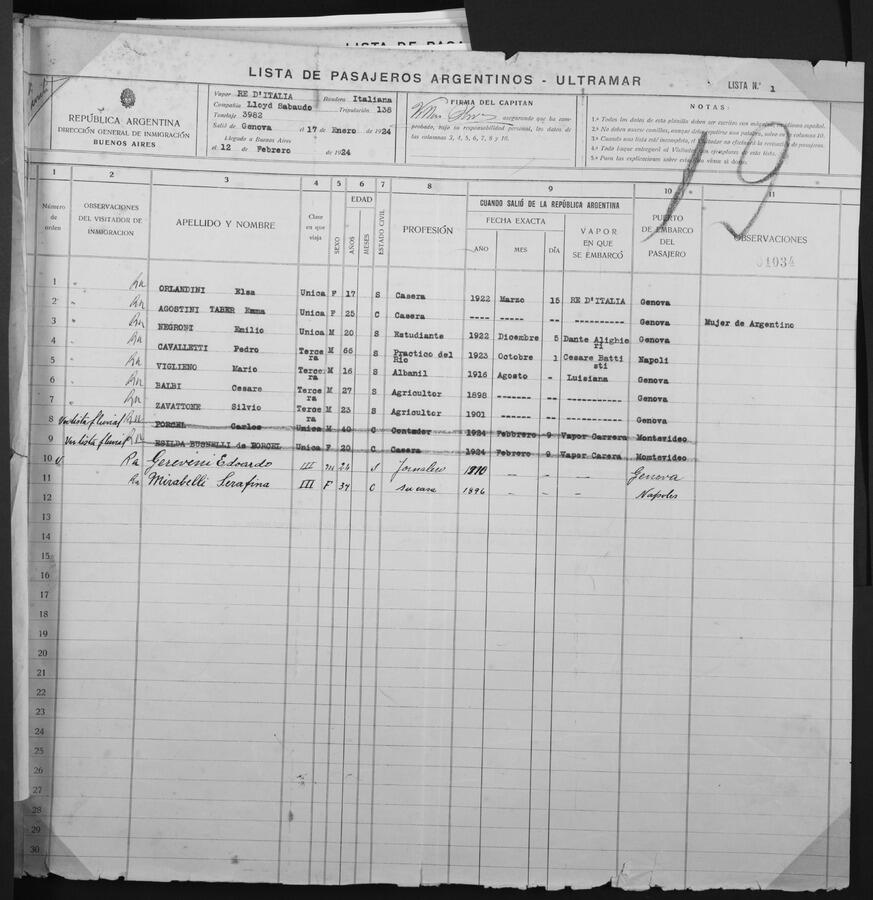 LISTA DE PASAJEROS ARGENTINOS - ULTRAMAR
LISTA N.º 1
REPÚBLICA ARGENTINA
DIRECCIÓN GENERAL DE INMIGRACIÓN
BUENOS AIRES
Vapor RE D'ITALIA Bandera Italiana
Compañía Lloyd Sabaudo Tripulación 138
Tonelaje 3982
Salió de Genova el 17 de Enero de 1924
Llegado a Buenos Aires
el 12 de Febrero de 1924
FIRMA DEL CAPITAN
asegurando que ha comprobado, bajo su responsabilidad personal, los datos de las columnas 3, 4, 5, 6, 7, 8 y 10.
NOTAS:
1.ª Todos los datos de esta planilla deben ser escritos con máquina idioma español.
19
1 2 3 4 5 6 7 8 9 10 11
Número de orden
OBSERVACIONES DEL VISITADOR DE INMIGRACION
APELLIDO Y NOMBRE
Clase en que viaja
SEXO
EDAD
AÑOS
MESES
ESTADO CIVIL
PROFESIÓN
CUANDO SALIÓ DE LA REPÚBLICA ARGENTINA
FECHA EXACTA
AÑO MES DÍA
VAPOR EN QUE SE EMBARCÓ
PUERTO DE EMBARCO DEL PASAJERO
OBSERVACIONES
01034
1 " Ra ORLANDINI Elsa Unica F 17 S Casera 1922 Marzo 15 RE D'ITALIA Genova
2 " Ra AGOSTINI TABER Emma Unica F 25 C Casera ---- ----- -- ---------- Genova Mujer de Argentino
3 " Ra NEGRONI Emilio Unica M 20 S Estudiante 1922 Dicembre 5 Dante Alighieri Genova
4 " Ra CAVALLETTI Pedro Tercera M 66 S Practico del Rio 1923 Octobre 1 Cesare Battisti Napoli
5 " Ra VIGLIENO Mario Tercera M 16 S Albanil 1916 Agosto - Luisiana Genova
6 " Ra BALBI Cesare Tercera M 27 S Agricultor 1898 ------- -- -------- Genova
7 " Ra ZAVATTONE Silvio Tercera M 23 S Agricultor 1901 ------- -- -------- Genova
8 Ra PORCEL Carlos Unica M 40 C Contador 1924 Febbrero 9 Vapor Carrera Montevideo
9 Ra ESILDA BUSSELLI de PORCEL Unica F 20 C Casera 1924 Febrero 9 Vapor Carera Montevideo
10 Ra Gerevini Edoardo III m 24 S Jornalero 1890 - - - Genova
11 Ra Mirabelli Serafina III F 34 C su casa 1896 - - - Napoles
12
13
14
15
16
17
18
19
20
21
22
23
24
25
26
27
28
29
30